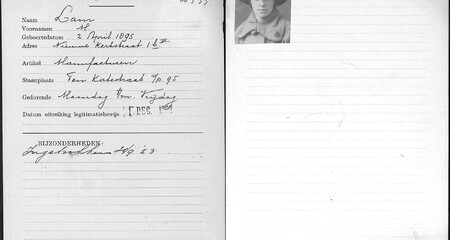 Naam Lam
Voornamen M.
Geboortedatum 2 April 1895
Adres Nieuwe Kerkstraat 1
Artikel Manufacturen
Staanplaats Ten Katestraat 95
Gedurende Maandag t/m Vrijdag
Datum uitreiking legitimatiebewijs 1 DEC.
BIJZONDERHEDEN:
Ingetrokken